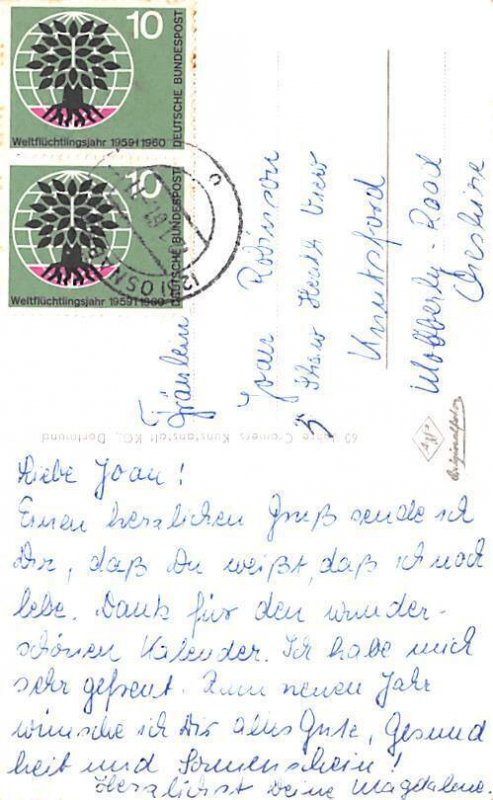 10
DEUTSCHE BUNDESPOST
Weltflüchtlingsjahr 1959/1960
10
DEUTSCHE BUNDESPOST
Weltflüchtlingsjahr 1959/1960
OSNABR
Fräulein
Joan Robinson
5 Shaw Heath View
Knutsford
Mobberly-Road
Cheshire
60 Jahre Cramers Kunstanstalt KG., Dortmund
Originalfoto
Liebe Joan!
Einen herzlichen Gruß sende ich
Dir, daß Du weißt, daß ich noch
lebe. Dank für den wunder-
schönen Kalender. Ich habe mich
sehr gefreut. Zum neuen Jahr
wünsche ich Dir alles Gute, Gesund
heit und Sonnenschein!
Herzlichst Deine Magdalene.